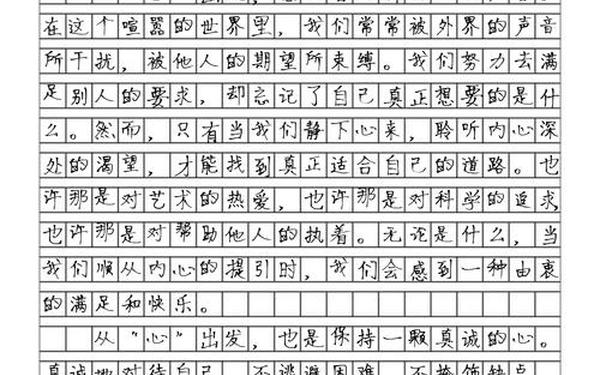 在这个喧嚣的世界里，我们常常被外界的声音
所干扰，被他人的期望所束缚。我们努力去满
足别人的要求，却忘记了自己真正想要的是什
么。然而，只有当我们静下心来，聆听内心深
处的渴望，才能找到真正适合自己的道路。也
许那是对艺术的热爱，也许那是对科学的追求，
也许那是对帮助他人的执着。无论是什么，当
我们顺从内心的提引时，我们会感到一种由衷
的满足和快乐。
从“心”出发，也是保持一颗真诚的心。
真诚地对待自己，不逃避困难，不掩饰缺点，